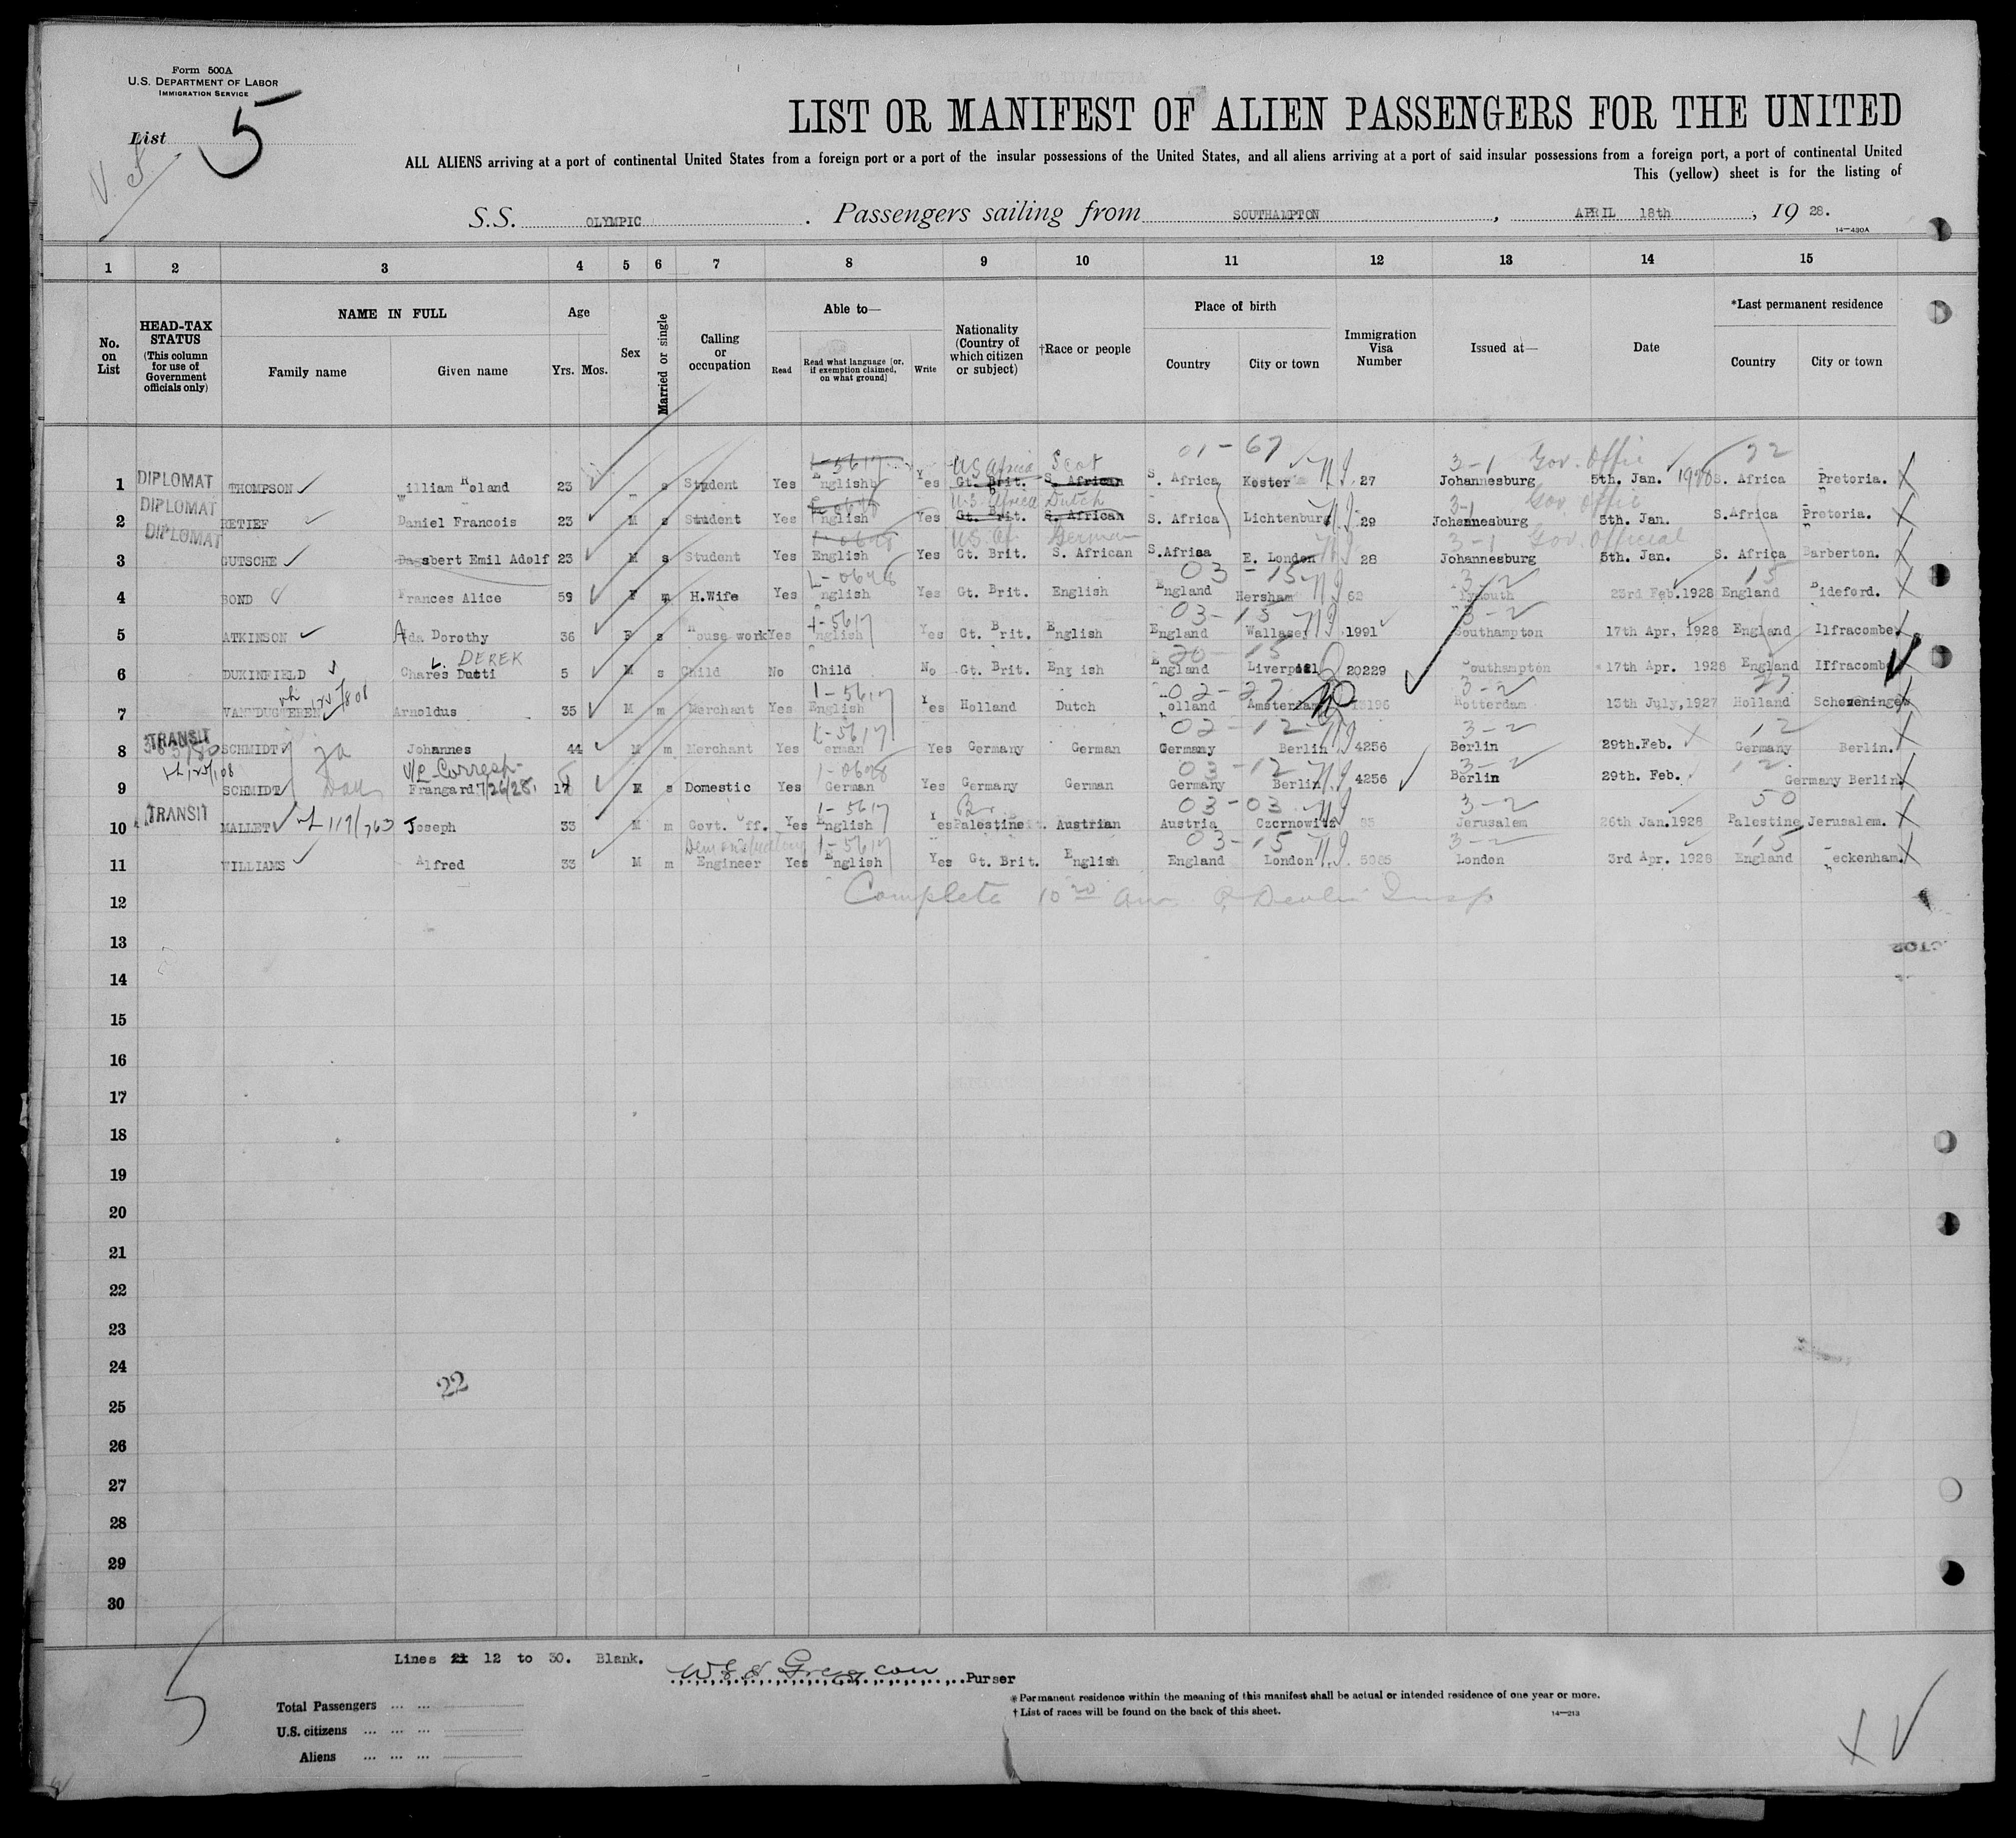 Form 500A
U.S. DEPARTMENT OF LABOR
IMMIGRATION SERVICE
List 5
LIST OR MANIFEST OF ALIEN PASSENGERS FOR THE UNITED
ALL ALIENS arriving at a port of continental United States from a foreign port or a port of the insular possessions of the United States, and all aliens arriving at a port of said insular possessions from a foreign port, a port of continental United
This (yellow) sheet is for the listing of
S.S. OLYMPIC . Passengers sailing from SOUTHAMPTON , APRIL 18th , 19 28.
14—430A
1 2 3 4 5 6 7 8 9 10 11 12 13 14 15
No. on List
HEAD-TAX STATUS (This column for use of Government officials only)
NAME IN FULL
Family name Given name
Age
Yrs. Mos.
Sex
Married or single
Calling or occupation
Able to—
Read Read what language [or, if exemption claimed, on what ground] Write
Nationality (Country of which citizen or subject)
†Race or people
Place of birth
Country City or town
Immigration Visa Number
Issued at—
Date
*Last permanent residence
Country City or town
01-67 3-1 Gov. Offic 32
L-5617 U S Africa Scot
1 DIPLOMAT THOMPSON William Roland 23 s Student Yes English Yes Gt. Brit. S. African S. Africa Koster 27 Johannesburg 5th. Jan. 1928 S. Africa Pretoria.
U.S. Africa Dutch 3-1 Gov. Offic
2 DIPLOMAT RETIEF Daniel Francois 23 M s Student Yes English Yes Gt. Brit. S. African S. Africa Lichtenburg 29 Johannesburg 5th. Jan. S.Africa Pretoria.
U.S. Af. German 3-1 Gov. Official
3 DIPLOMAT GUTSCHE Dagsbert Emil Adolf 23 M s Student Yes English Yes Gt. Brit. S. African S.Africa E. London 28 Johannesburg 5th. Jan. S. Africa Barberton.
L-0628 03-15 3-2 15
4 BOND Frances Alice 59 F m H.Wife Yes English Yes Gt. Brit. English England Hersham 62 Plymouth 23rd Feb.1928 England Bideford.
1-5617 03-15 3-2
5 ATKINSON Ada Dorothy 36 F s House work Yes English Yes Gt. Brit. English England Wallasey 1991 Southampton 17th Apr. 1928 England Ilfracombe
L. DEREK 20-15
6 DUKINFIELD Chares Dutti 5 M s Child No Child No Gt. Brit. English England Liverpool 20229 Southampton 17th Apr. 1928 England Ilfracombe
1-5617 02-27 3-2 27
7 Arnoldus 35 M m Merchant Yes English Yes Holland Dutch Holland Amsterdam Rotterdam 13th July,1927 Holland
1-5617 02-12 3-2 12
8 TRANSIT SCHMIDT Johannes 44 M m Merchant Yes German Yes Germany German Germany Berlin 4256 Berlin 29th.Feb. Germany Berlin.
V/L-Corresp- 1-0628 03-12 3-2 12
9 SCHMIDT Frangard 7/26/28. 17 s Domestic Yes German Yes Germany German Germany Berlin. 4256 Berlin 29th. Feb. Germany Berlin
1-5617 Br. 03-03 3-2 50
10 TRANSIT MALLET 119/763 Joseph 33 M m Govt. Off. Yes English Yes Palestine Austrian Austria Czernowitz 85 Jerusalem 26th Jan.1928 Palestine Jerusalem.
1-5617 03-15 3-2 15
11 WILLIAMS Alfred 33 M m Engineer Yes English Yes Gt. Brit. English England London 5985 London 3rd Apr. 1928 England Beckenham.
12 Complete 10 20 am Devlin Insp
13
14
15
16
17
18
19
20
21
22
23
24
22
25
26
27
28
29
30
Lines 21 12 to 30. Blank.
Purser
5
Total Passengers ... ...
U.S. citizens ... ... ...
Aliens ... ... ...
*Permanent residence within the meaning of this manifest shall be actual or intended residence of one year or more.
†List of races will be found on the back of this sheet.
14—213